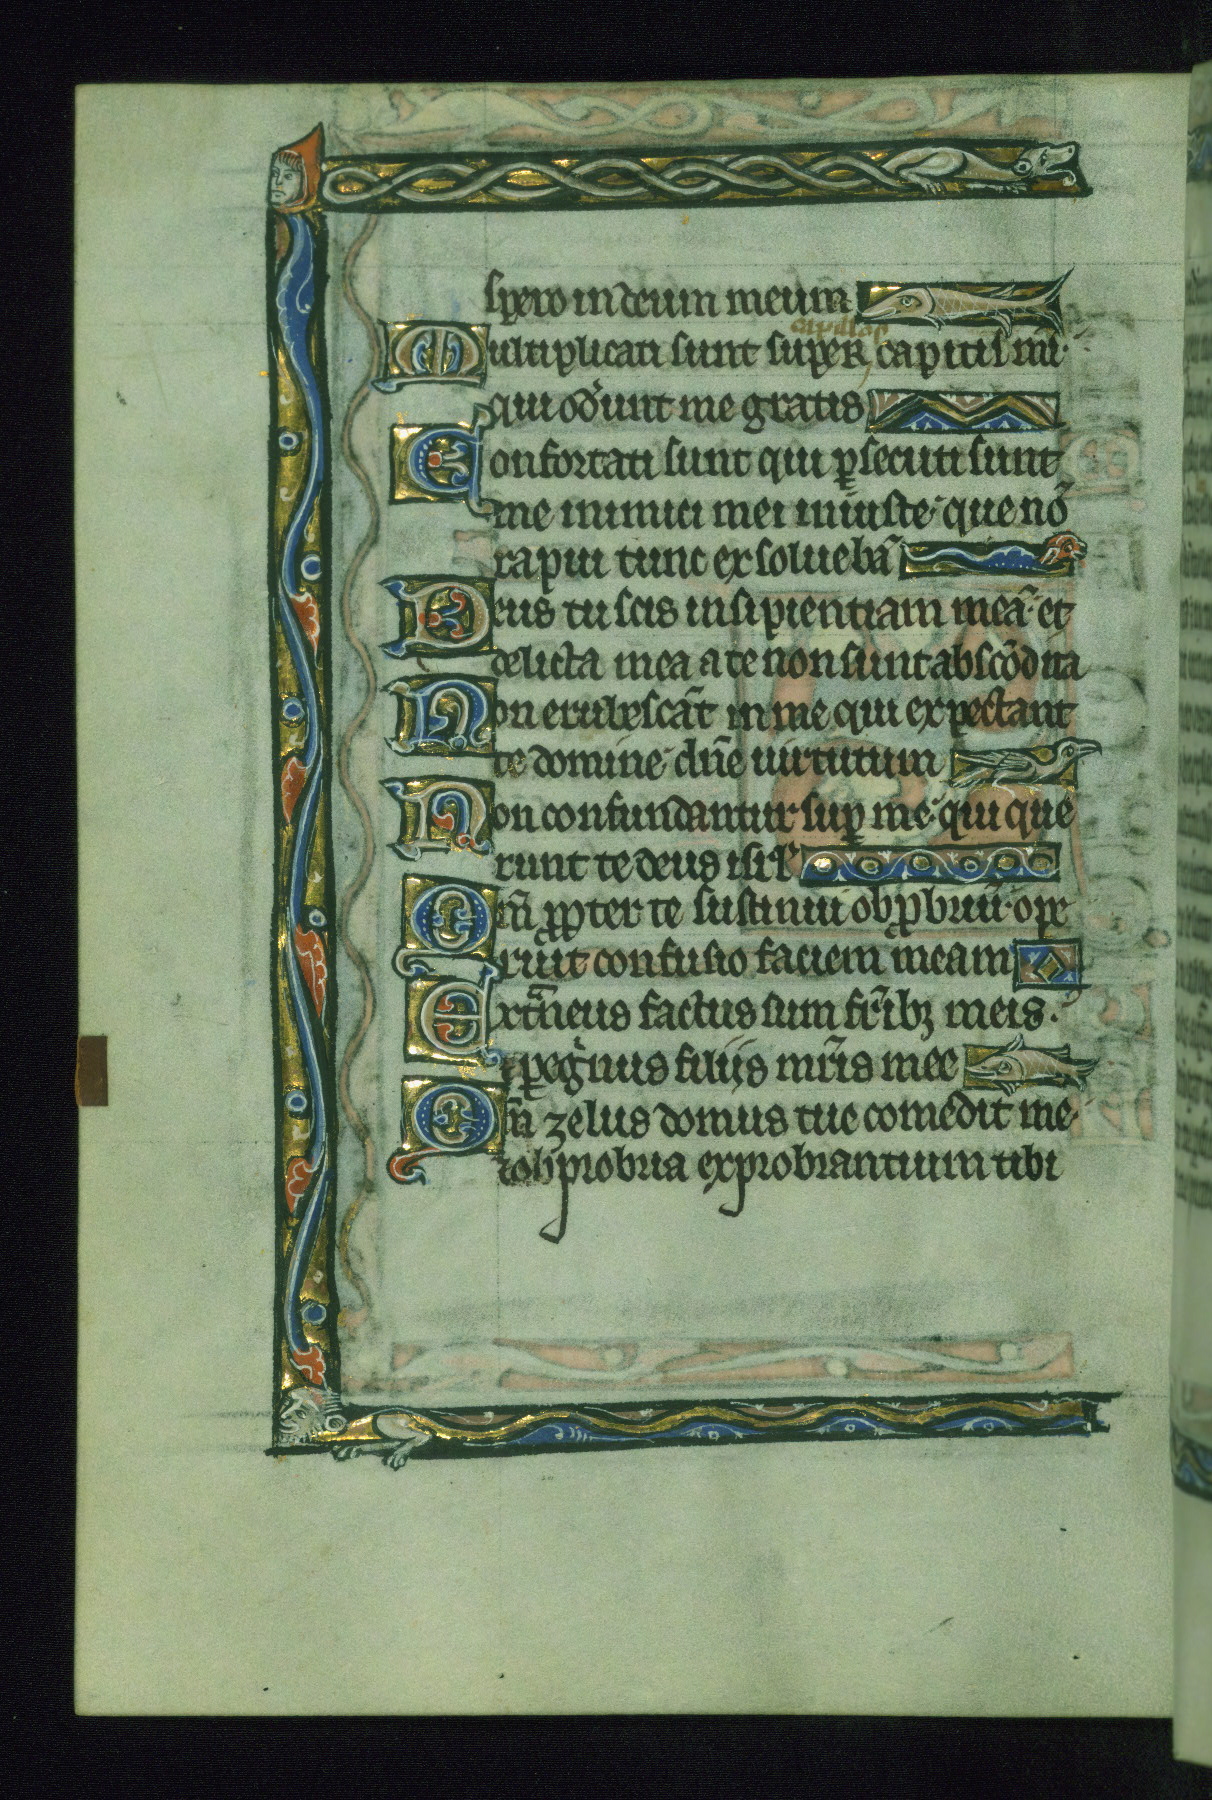 spero in deum meum
capillos
Multiplicati sunt super capitis mi·
qui oderunt me gratis
Confortati sunt qui ꝑsecuti sunt
me inimici mei iniuste· que nō
rapui tunc exsoluebā
Deus tu scis insipientiam meā· et
delicta mea a te non sunt abscōdita
Non erubescāt in me qui expectant
te domine· dn̄e uirtutum
Non confundantur suꝑ me· qui que
runt te deus isrl
Qm̄ ꝓpter te sustinui obꝓbriū· ope
ruit confusio faciem meam
Extͣneus factus sum fr̄ibꝫ meis·
⁊ ꝑegͥnus filijs mr̄is mee
Qm̄ zelus domus tue comedit me·
⁊ obprobria exprobrantium tibi